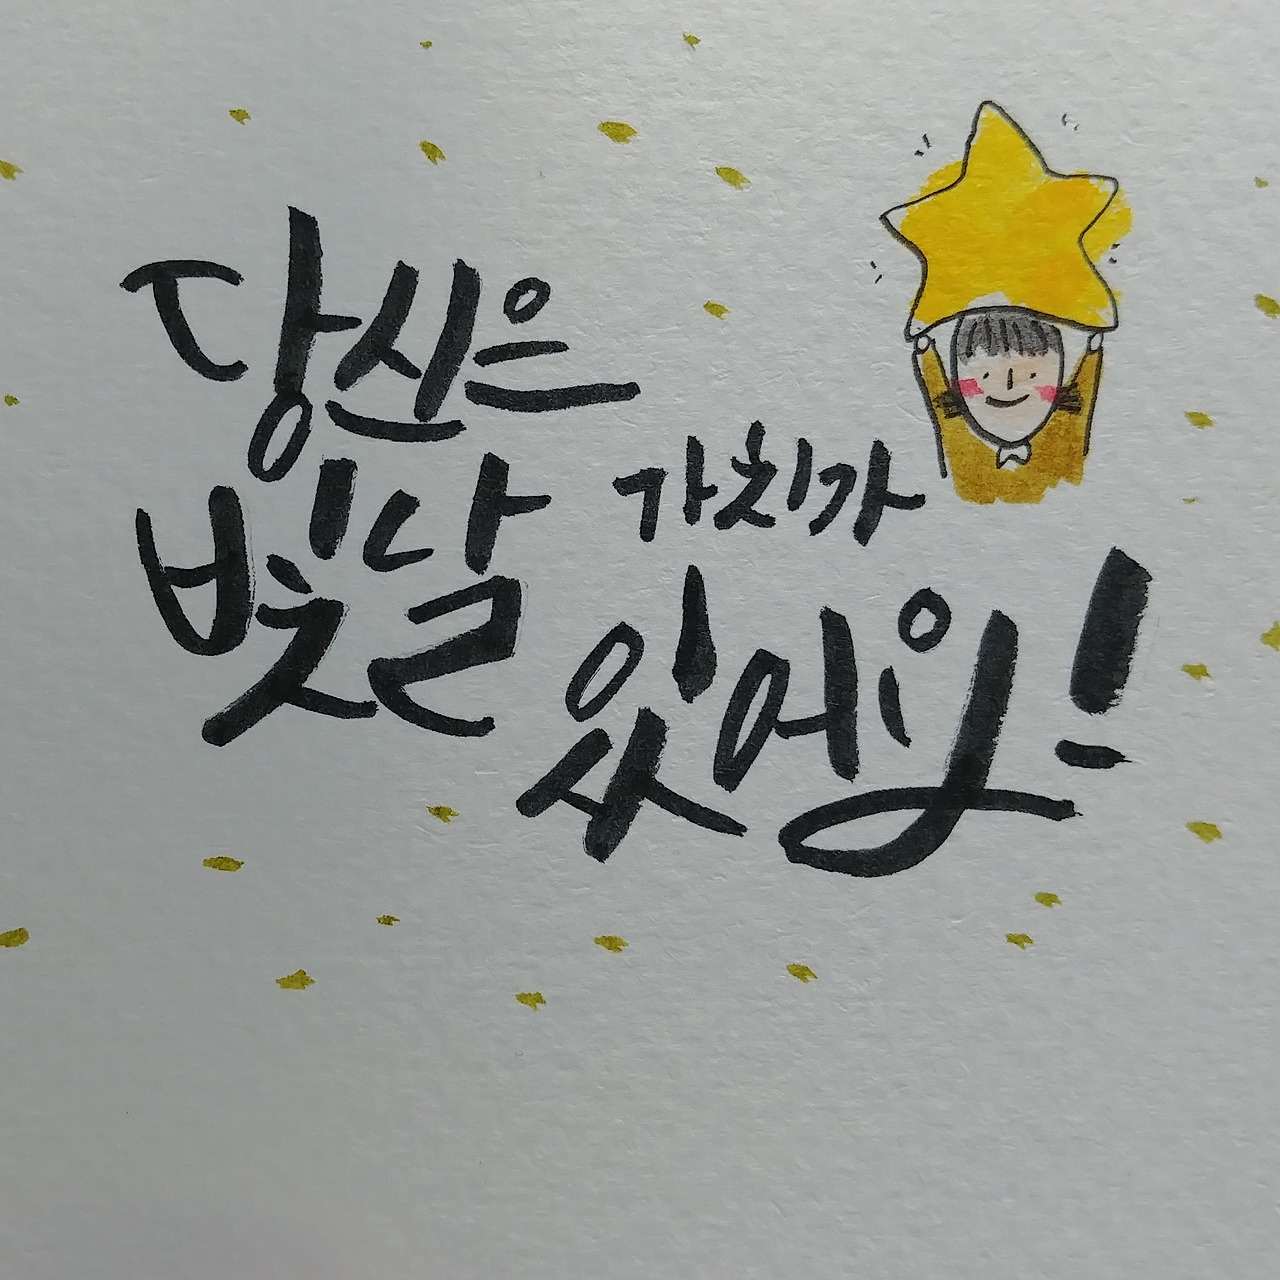 당신은
빛날 가치가
있어요!